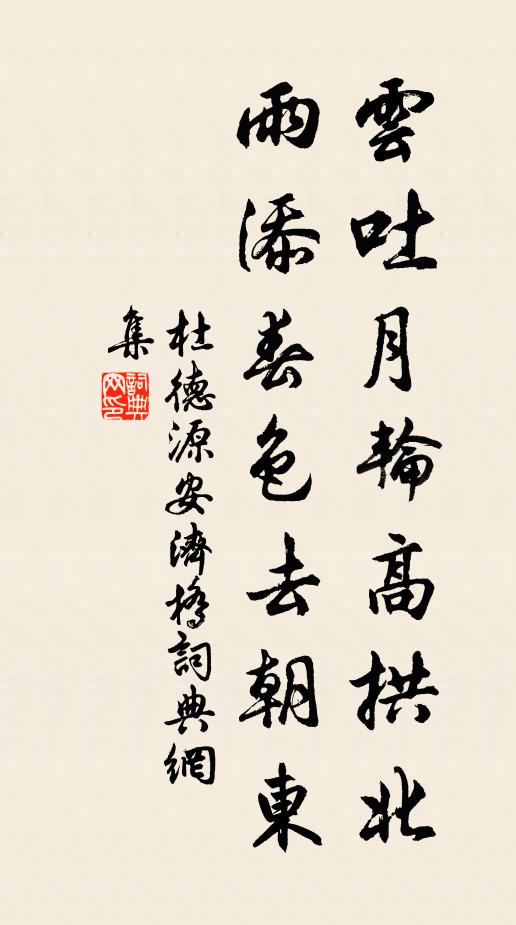 雲吐月輪高拱北
雨添春色去朝東
杜德源安濟橋詞典網
集
詞典
网印